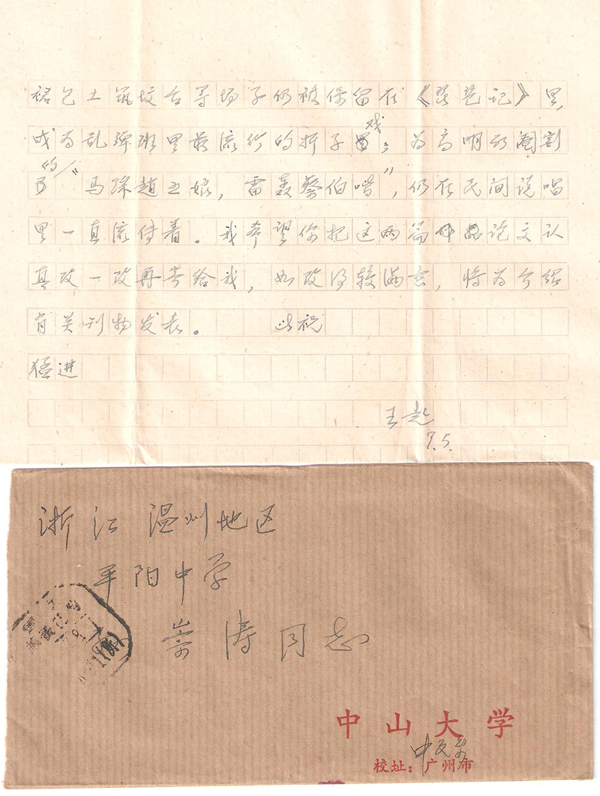 裙包土筑坟台等场子仍被保留在《琵琶记》里,
成为乱弹班里最流行的折子戏;为高明所阉割
的"马踩赵五娘,雷轰蔡伯喈",仍在民间说唱
里一直流传着。我希望你把这两篇论文认
真改一改再寄给我,如改得较满意,将为介绍
有关刊物发表。 此祝
猛进
王起
7.5.
浙江温州地区
平阳中学
崇涛同志
中山大学
中文系
校址:广州市